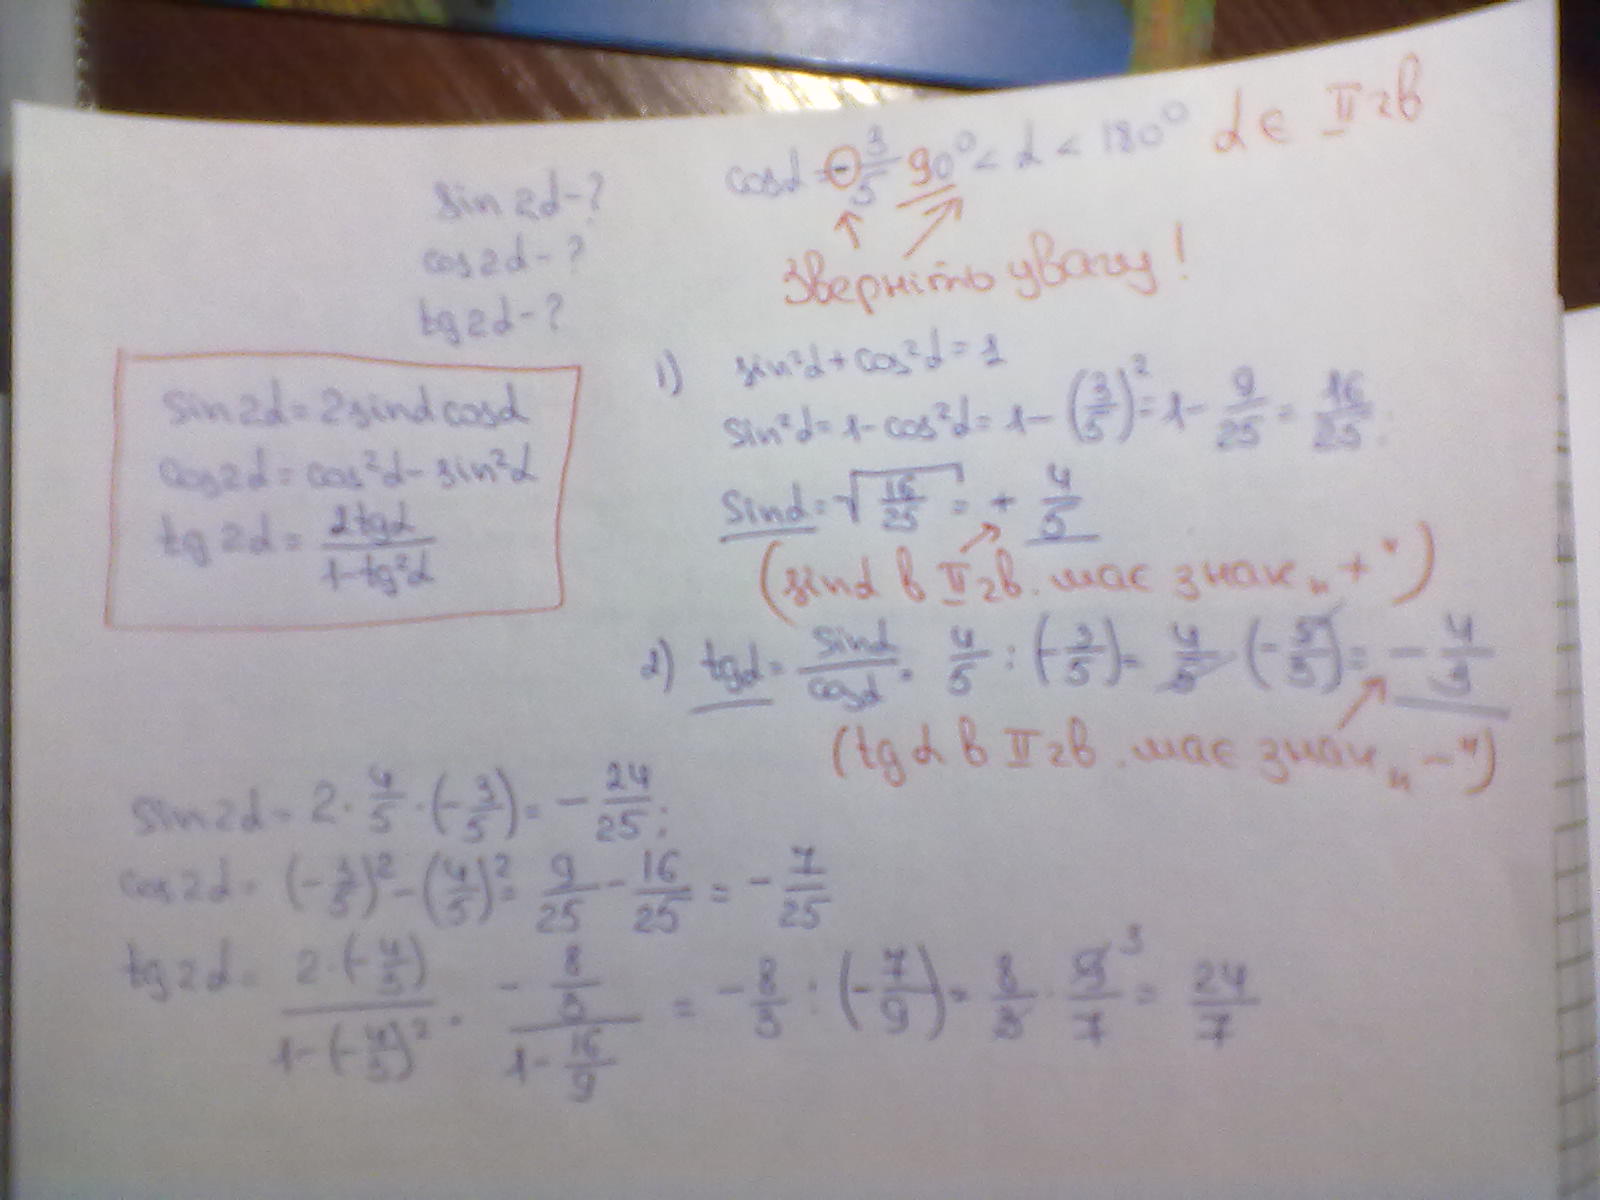 sin2α-?
cos2α-?
tg2α-?
cosα=-3/5 90°<α<180° α є II чв
Зверніть увагу!
sin2α=2sinαcosα
cos2α=cos²α-sin²α
tg2α=2tgα/1-tg²α
1) sin²α+cos²α=1
sin²α=1-cos²α=1-(3/5)²=1-9/25=16/25;
sinα=√16/25=+4/5
(sinα в II чв. має знак „+“)
2) tgα=sinα/cosα=4/5:(-3/5)=4/5·(-5/3)=-4/3
(tgα в II чв. має знак „-“)
sin2α=2·4/5·(-3/5)=-24/25;
cos2α=(-3/5)²-(4/5)²=9/25-16/25=-7/25
tg2α=2·(-4/3)/1-(-4/3)²=-8/3/1-16/9=-8/3:(-7/9)=8/3·9/7 3=24/7